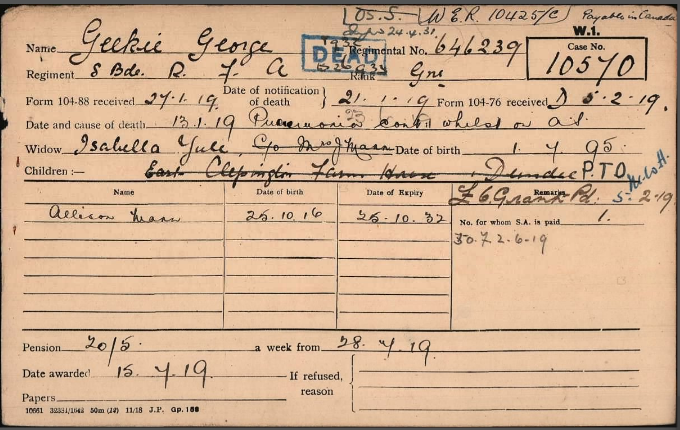 OS.S. W E R. 10425/C Payable in Canada
24.4.31 W.1.
Name Geekie George DEAD Regimental No. 646239 Case No. 10570
Regiment 8 Bde. R. F. A Rank Gnr
Form 104-88 received 27.1.19. Date of notification of death 21.1.19 Form 104-76 received D 5-2-19.
Date and cause of death 13.1.19 Pneumonia whilst on a.s.
Widow Isabella Yule C/o Mrs J Mann Date of birth 1. 7. 95.
Children:— East Clepington Farm House, Dundee P.T.O
Name Date of birth Date of Expiry Remarks
£6 Grank Pd. 5-2-19.
Allison Mann 25.10.16 25.10.32 No. for whom S.A. is paid 1.
2-6-19
Pension 20/5. a week from 28. 7. 19
Date awarded 15. 7. 19. If refused, reason
Papers
10661 32331/1642 50m (12) 11/18 J.P. Gp. 168